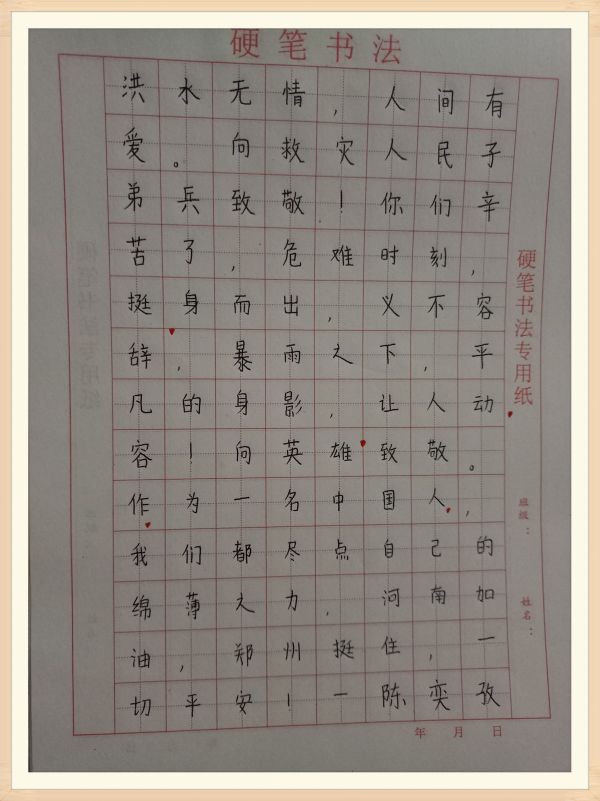 硬笔书法
洪水无情，人间有
爱。向救灾人民子
弟兵致敬！你们辛
苦了，危难时刻，
挺身而出，义不容
辞，暴雨之下，平
凡的身影，让人动
容！向英雄致敬。
作为一名中国人，
我们都尽点自己的
绵薄之力，河南加
油，郑州挺住，一
切平安！一陈奕孜
硬笔书法专用纸
班级：
姓名：
年 月 日